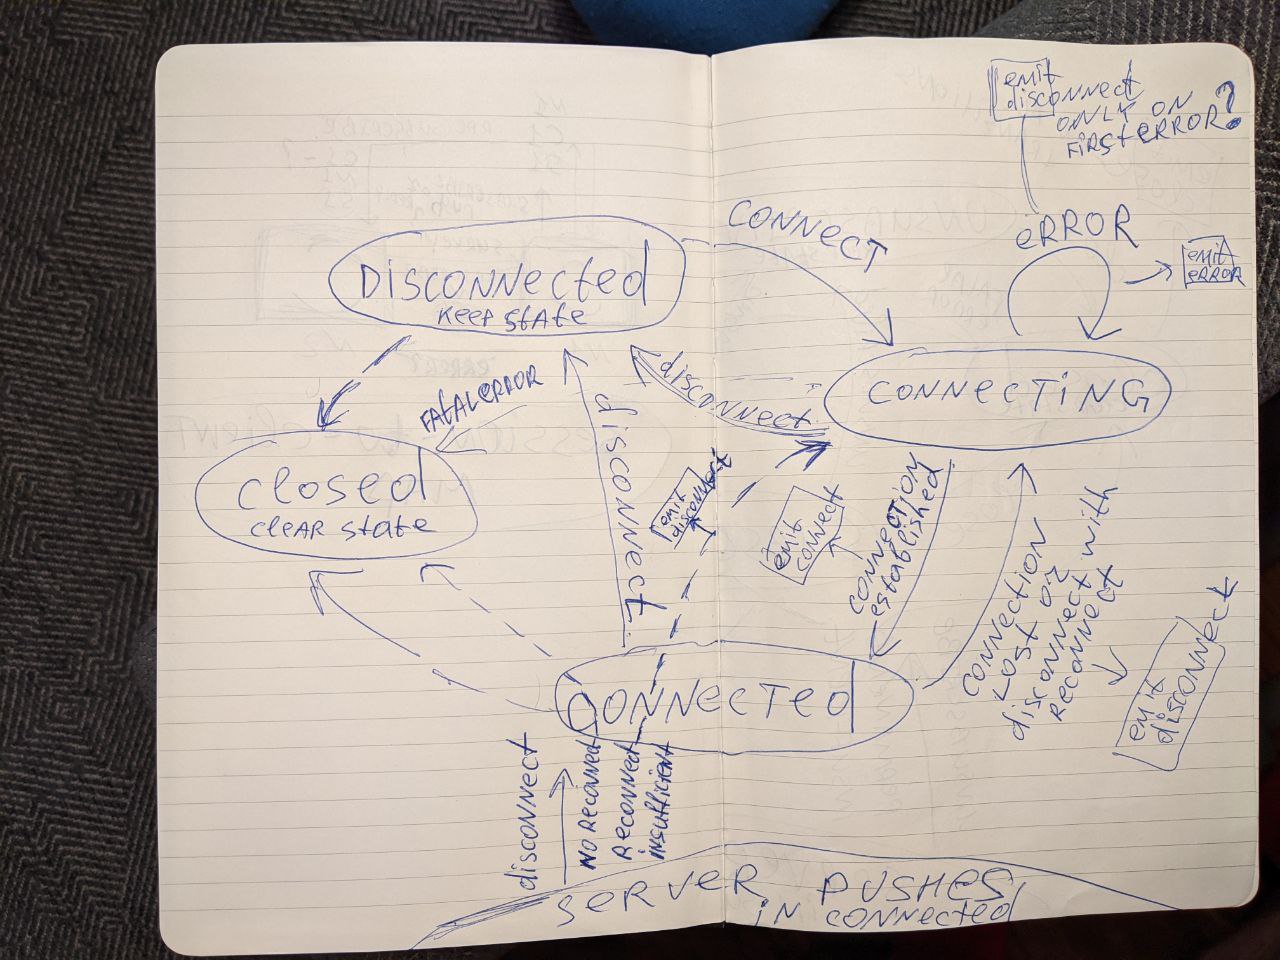 emit
disconnect
ONLY ON
FIRST ERROR?
CONNECT
eRROR
emit
eRROR
DiSCONNected
KEEP StAte
disconnect
CONNECTiNG
FAtAL eRROR
closed
cLEAR state
disconnect
emit
disconnect
emit
connect
CONNECTION
established
CONNECTION
LOST OR
disconnect with
RECONNECT
emit
disconnect
CONNECTed
disconnect
NO RECONNECT
RECONNECT
iNSUfficieNt
SERVER PUSHES
iN CONNected